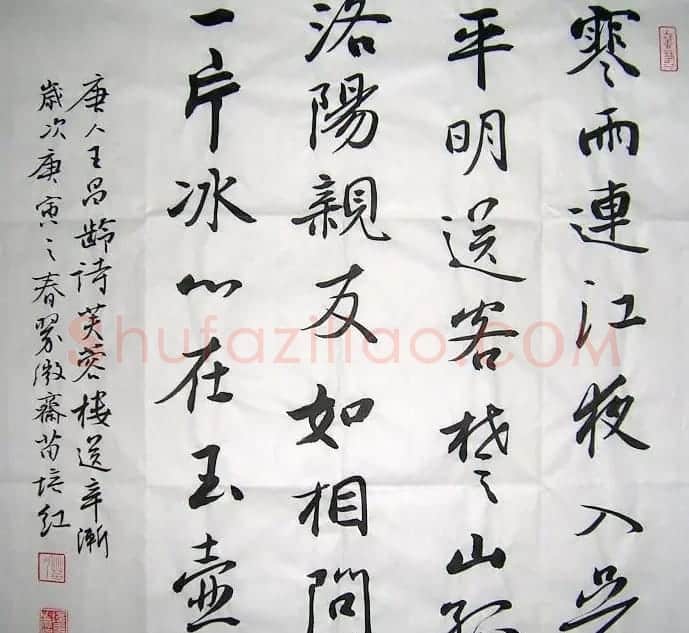 寒雨連江夜入吳
平明送客楚山孤
洛陽親友如相問
一片冰心在玉壺
唐人王昌齡詩芙蓉樓送辛漸
歲次庚寅之春翠微齋苗培紅
Shufaziliao.COM